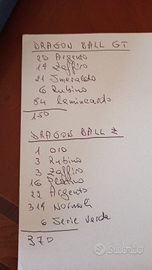 DRAGON BALL GT
20 Argento
19 Zaffiro
21 Smeraldo
6 Rubino
84 lamincards
150
DRAGON BALL Z
1 oro
3 Rubino
3 Zaffiro
16 Platino
22 Argento
319 Normali
6 Serie verde
370
subito